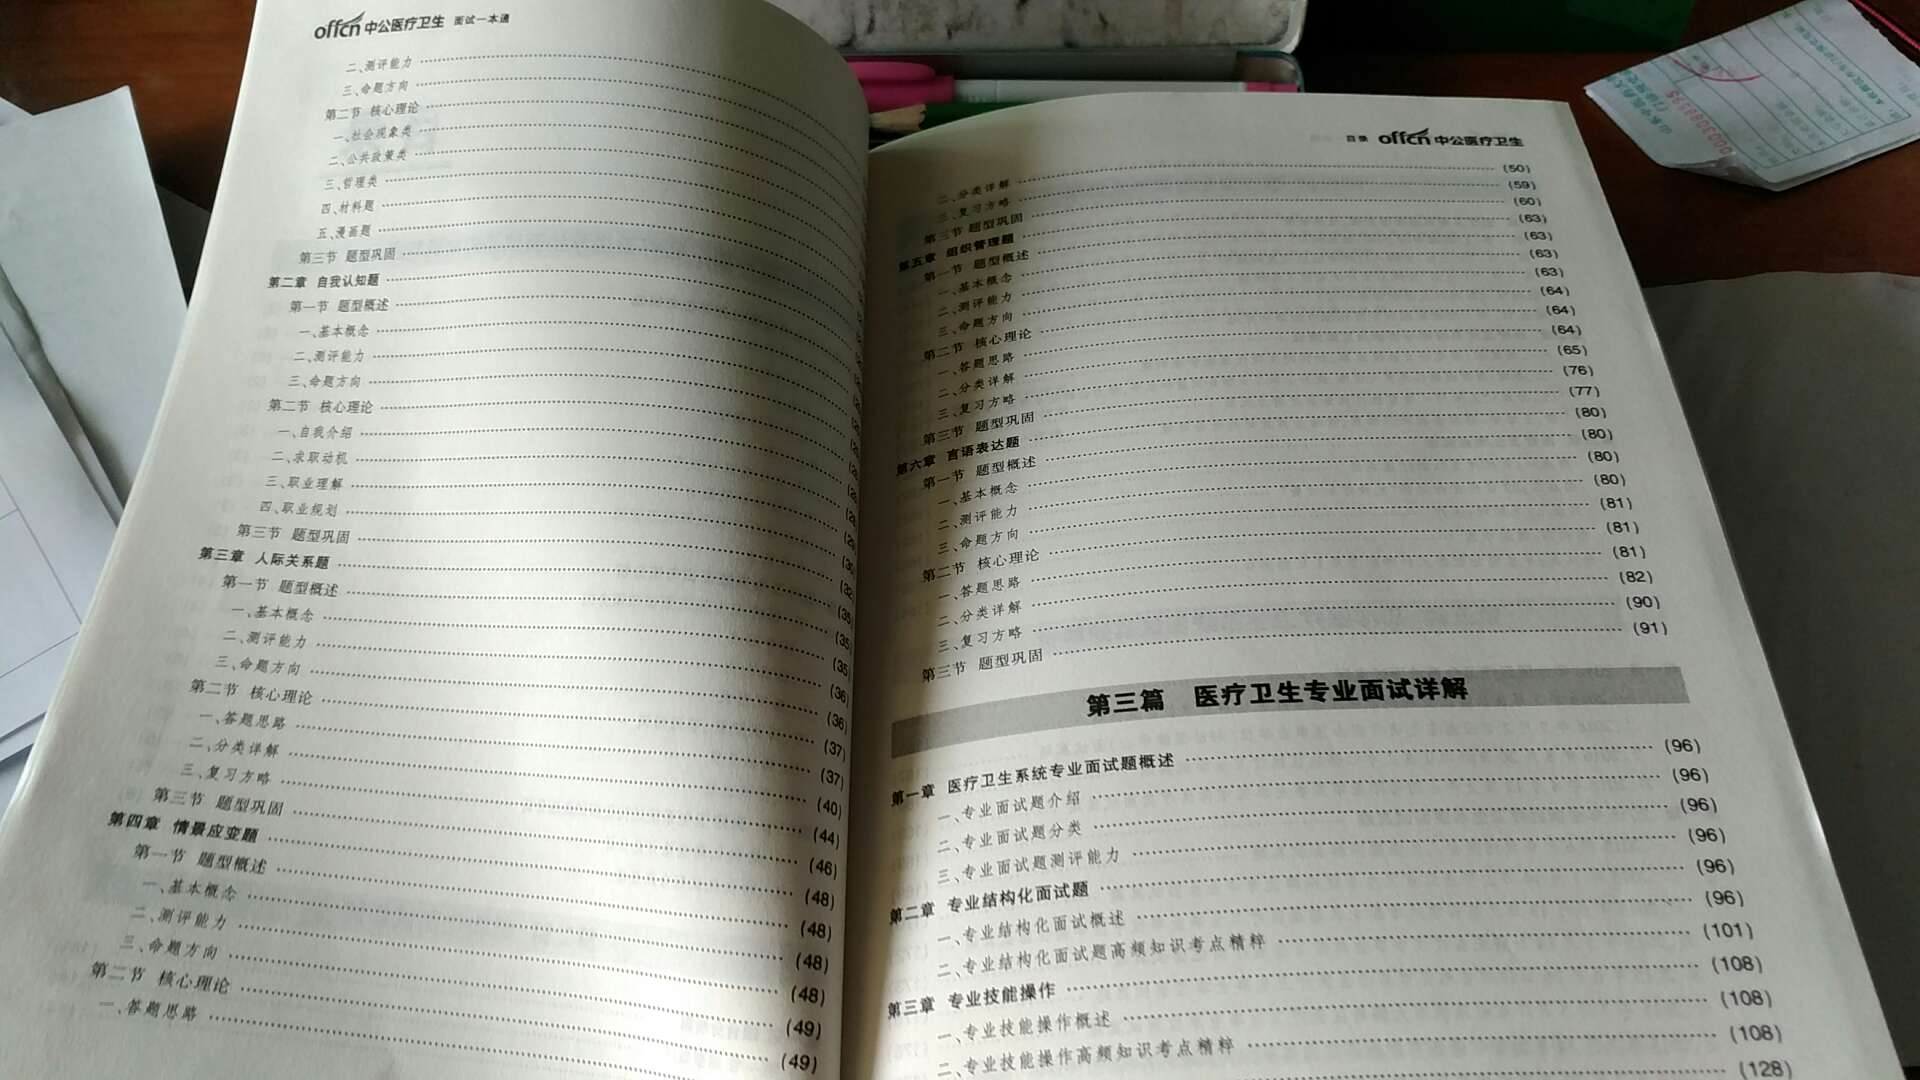 offcn 中公医疗卫生 面试一本通
二、测评能力
三、命题方向
第二节 核心理论
一、社会现象类
二、公共政策类
三、哲理类
四、材料题
五、漫画题
第三节 题型巩固
第二章 自我认知题
第一节 题型概述
一、基本概念
二、测评能力
三、命题方向
第二节 核心理论
一、自我介绍
二、求职动机
三、职业理解
四、职业规划 (30)
第三节 题型巩固 (32)
第三章 人际关系题 (35)
第一节 题型概述 (35)
一、基本概念 (35)
二、测评能力 (36)
三、命题方向 (36)
第二节 核心理论 (37)
一、答题思路 (37)
二、分类详解 (40)
三、复习方略 (44)
第三节 题型巩固 (46)
第四章 情景应变题 (48)
第一节 题型概述 (48)
一、基本概念 (48)
二、测评能力 (48)
三、命题方向 (49)
第二节 核心理论 (49)
一、答题思路
目录 offcn 中公医疗卫生
二、分类详解 (50)
三、复习方略 (59)
第三节 题型巩固 (60)
第五章 组织管理题 (63)
第一节 题型概述 (63)
一、基本概念 (63)
二、测评能力 (63)
三、命题方向 (64)
第二节 核心理论 (64)
一、答题思路 (64)
二、分类详解 (65)
三、复习方略 (76)
第三节 题型巩固 (77)
第六章 言语表达题 (80)
第一节 题型概述 (80)
一、基本概念 (80)
二、测评能力 (80)
三、命题方向 (81)
第二节 核心理论 (81)
一、答题思路 (81)
二、分类详解 (82)
三、复习方略 (90)
第三节 题型巩固 (91)
第三篇 医疗卫生专业面试详解
第一章 医疗卫生系统专业面试题概述 (96)
一、专业面试题介绍 (96)
二、专业面试题分类 (96)
三、专业面试题测评能力 (96)
第二章 专业结构化面试题 (96)
一、专业结构化面试概述 (96)
二、专业结构化面试题高频知识考点精粹 (101)
第三章 专业技能操作 (108)
一、专业技能操作概述 (108)
二、专业技能操作高频知识考点精粹 (108)
(128)